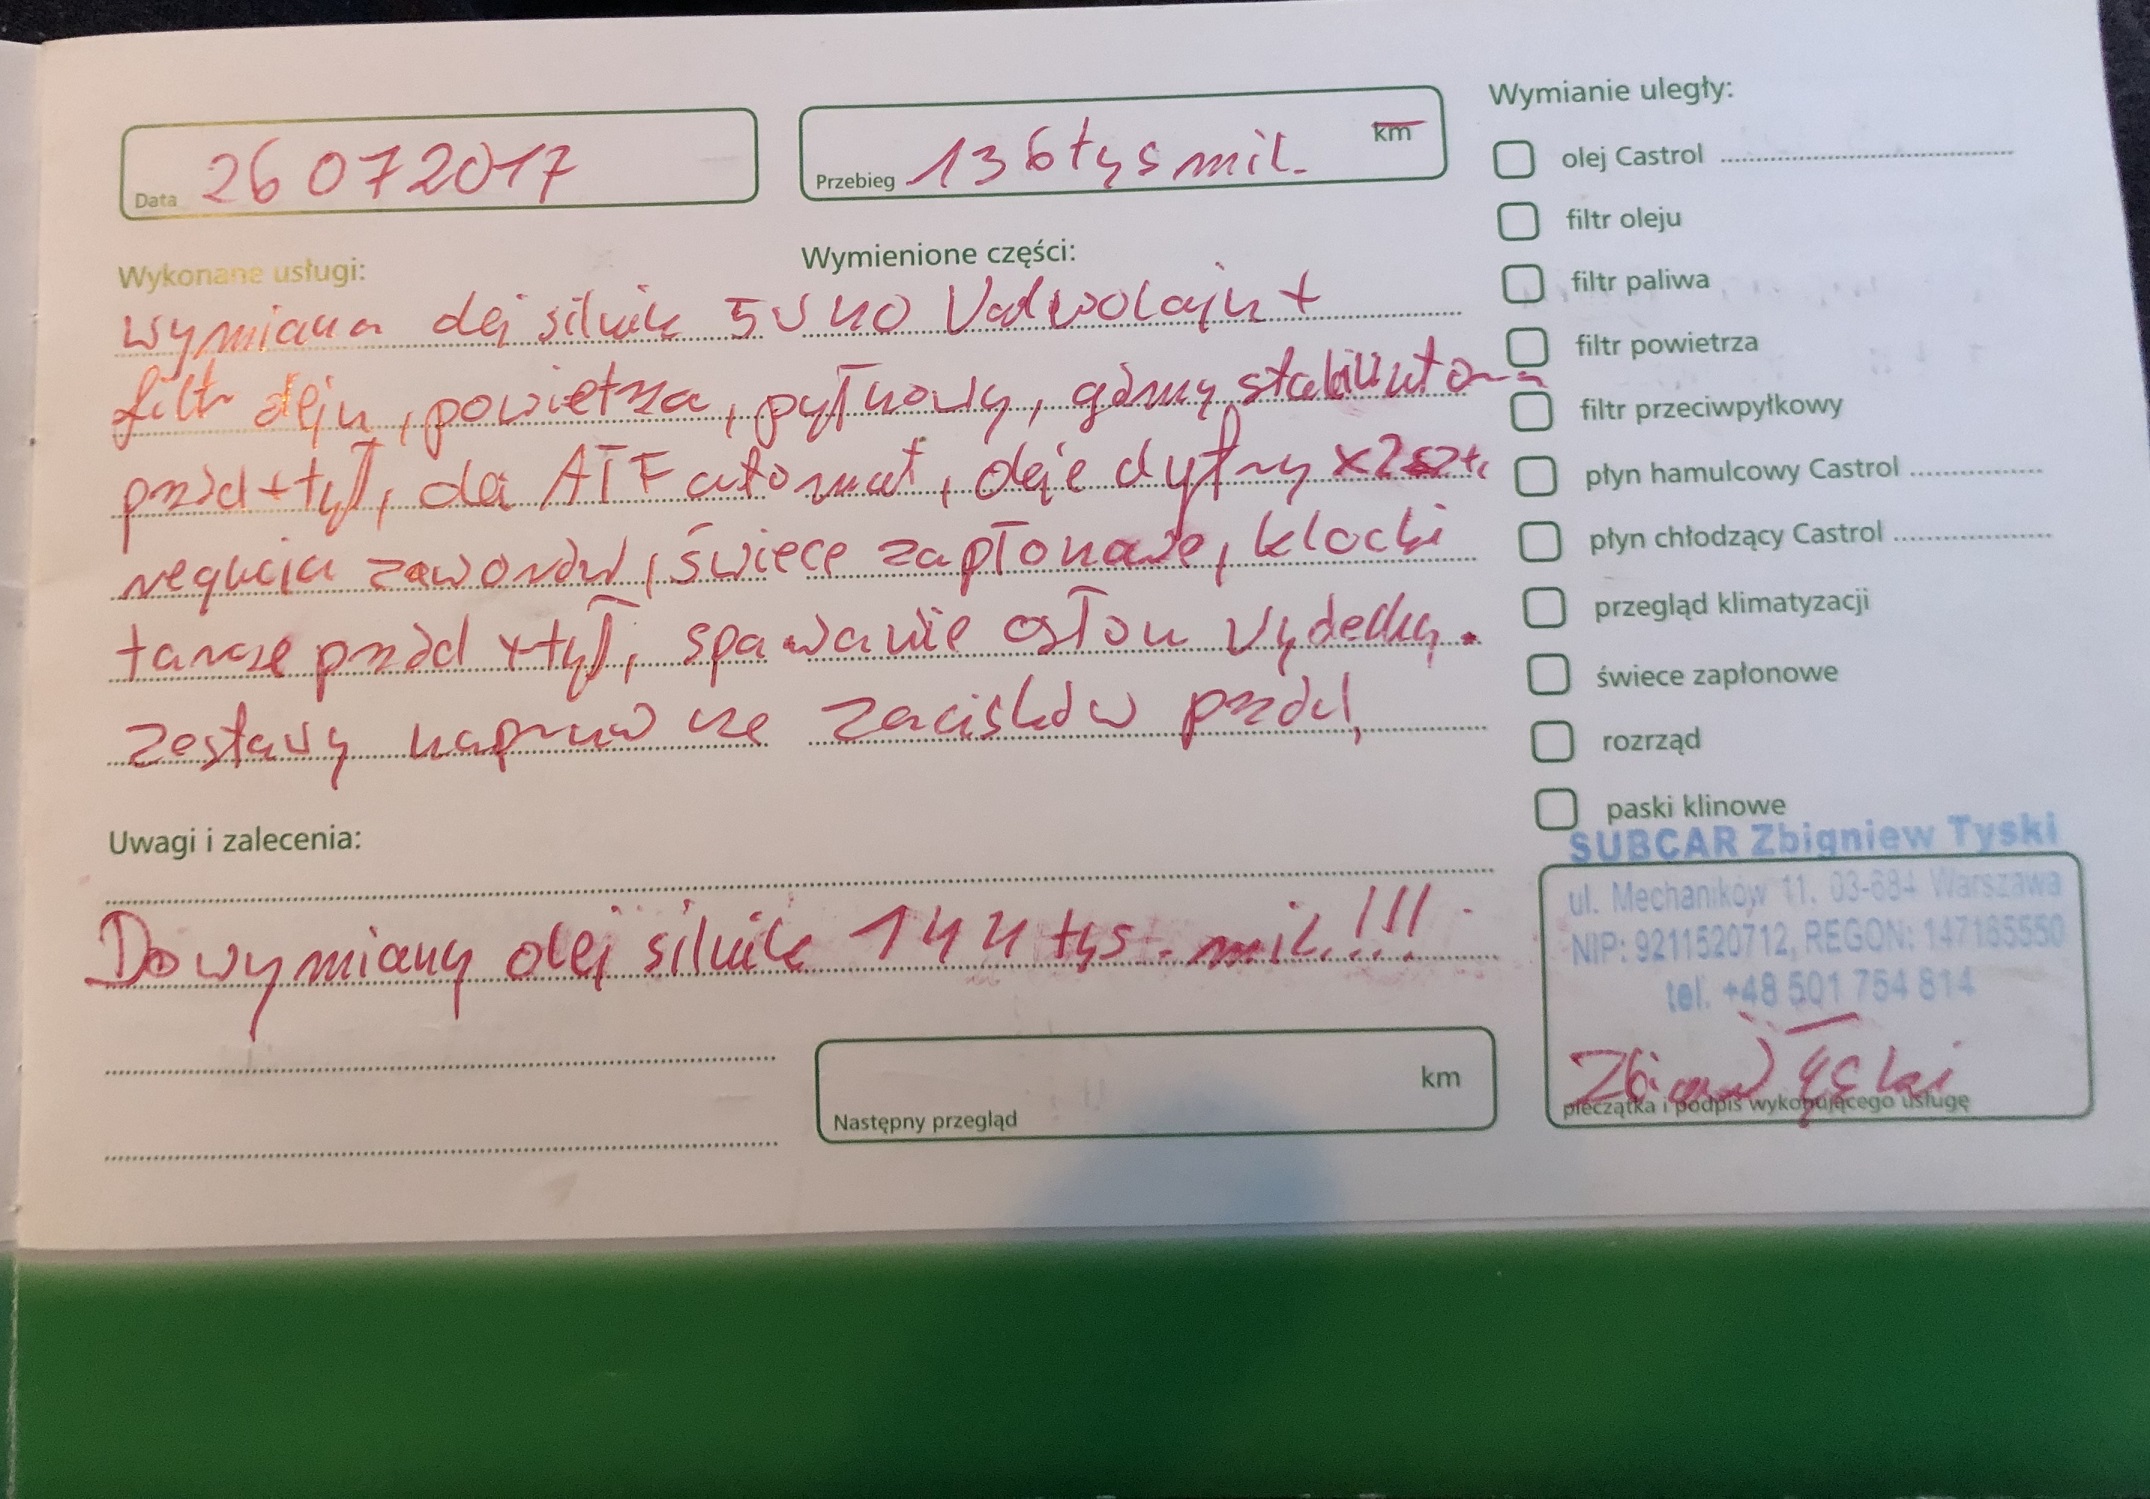 Data 26 07 2017
Przebieg 136 tyś mil. km
Wykonane usługi:
Wymienione części:
wymiana olej silnik 5W40 Valwolajn +
filtr oleju, powietrza, pyłkowy, gumy stabilizatora
przód + tył, olej ATF automat, oleje dyfry x2 szt.
regulcja zaworów, świece zapłonowe, klocki
tarcze przód + tył, spawanie osłon wydechu.
zestawy naprawcze zacisków przód,
Uwagi i zalecenia:
Do wymiany olej silnik 144 tyś. mil.!!!
km
Następny przegląd
Wymianie uległy:
olej Castrol
filtr oleju
filtr paliwa
filtr powietrza
filtr przeciwpyłkowy
płyn hamulcowy Castrol
płyn chłodzący Castrol
przegląd klimatyzacji
świece zapłonowe
rozrząd
paski klinowe
SUBCAR Zbigniew Tyski
ul. Mechaników 11, 03-684 Warszawa
NIP: 9211520712, REGON: 147165550
tel. +48 501 754 814
pieczątka i podpis wykonującego usługę